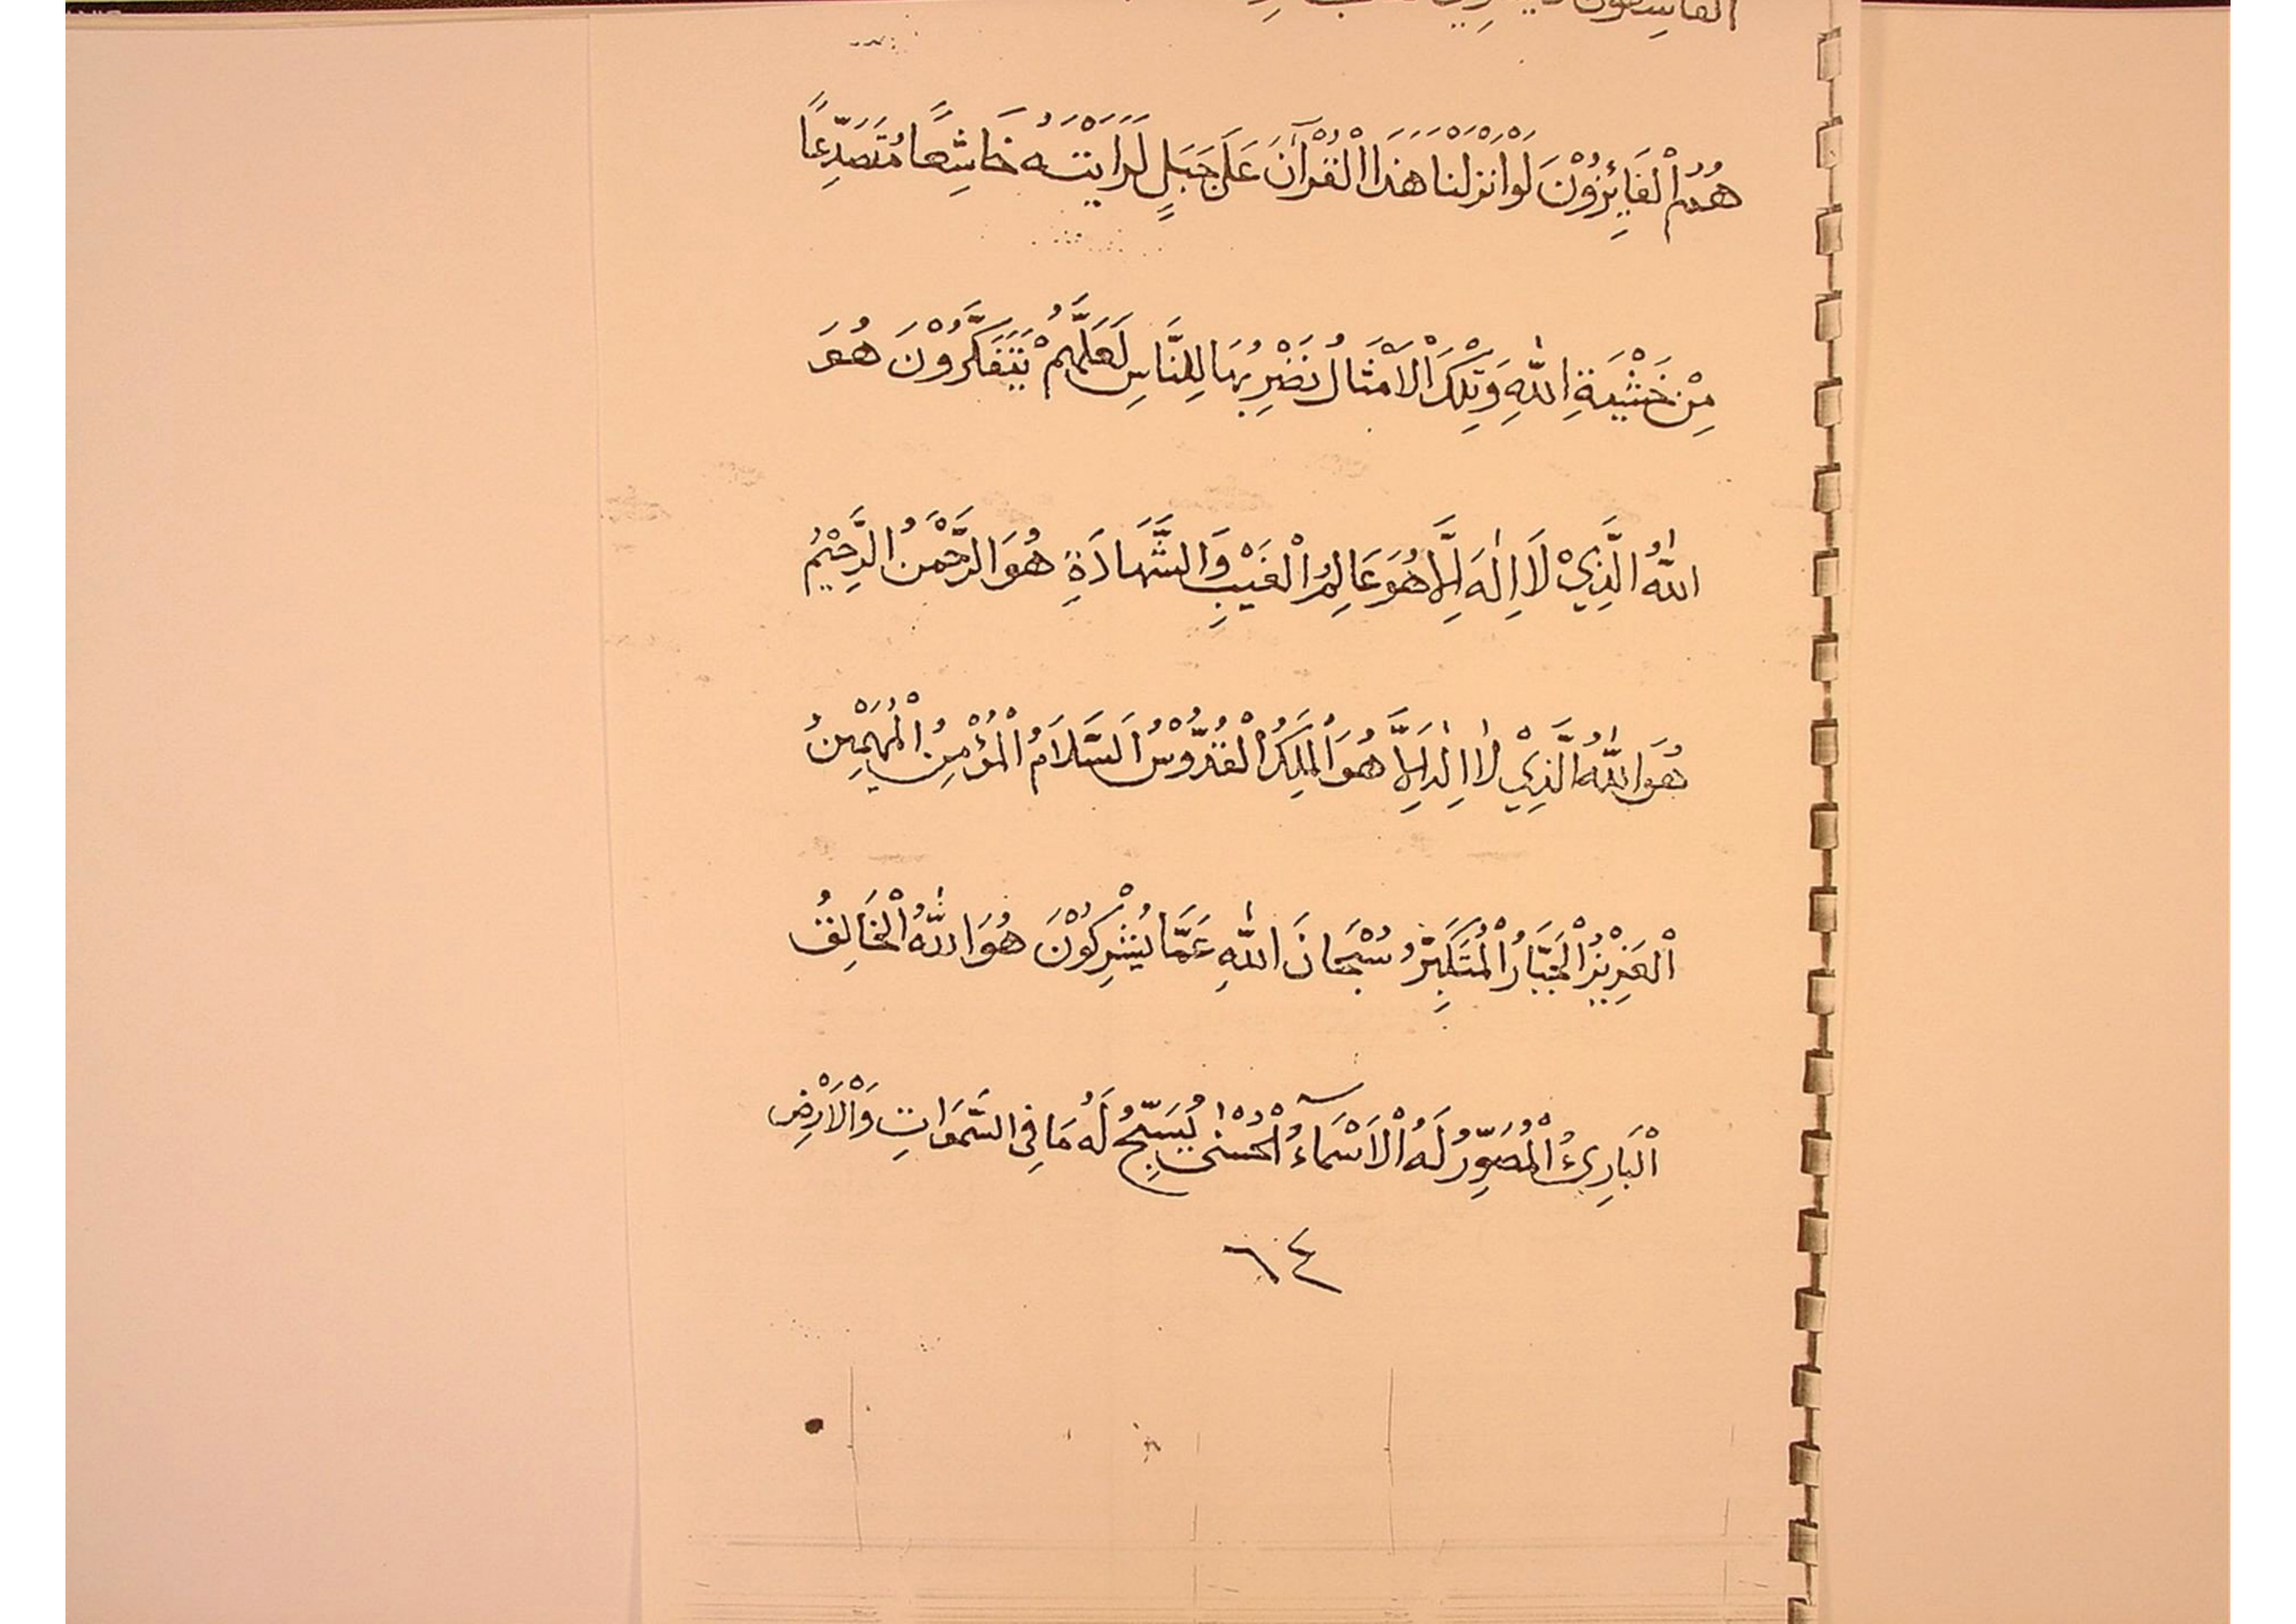 الفَاسِقُوْنَ
هُمُ الْفَائِزُوْنَ لَوْ اَنْزَلْنَا هَذَا الْقُرْآنَ عَلَى جَبَلٍ لَرَاَيْتَهُ خَاشِعًا مُتَصَدِّعًا
مِنْ خَشْيَةِ اللّٰهِ وَتِلْكَ الْاَمْثَالُ نَضْرِبُهَا لِلنَّاسِ لَعَلَّهُمْ يَتَفَكَّرُوْنَ هُوَ
اللّٰهُ الَّذِيْ لَا اِلٰهَ اِلَّا هُوَ عَالِمُ الْغَيْبِ وَالشَّهَادَةِ هُوَ الرَّحْمٰنُ الرَّحِيْمُ
هُوَ اللّٰهُ الَّذِيْ لَا اِلٰهَ اِلَّا هُوَ الْمَلِكُ الْقُدُّوْسُ السَّلَامُ الْمُؤْمِنُ الْمُهَيْمِنُ
الْعَزِيْزُ الْجَبَّارُ الْمُتَكَبِّرُ سُبْحَانَ اللّٰهِ عَمَّا يُشْرِكُوْنَ هُوَ اللّٰهُ الْخَالِقُ
الْبَارِئُ الْمُصَوِّرُ لَهُ الْاَسْمَآءُ الْحُسْنٰى يُسَبِّحُ لَهُ مَا فِى السَّمَوَاتِ وَالْاَرْضِ
٦٤